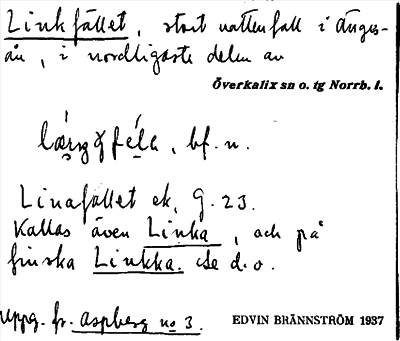 Linkfället, stort vattenfall i Änges-
ån, i nordligaste delen av
Överkalix sn o. tg Norrb. l.
bf. n.
Linafället ek. G. 23.
Kallas även Linka, och på
finska Linkka. Se d. o.
Uppg. fr. Aspberg no 3.
EDVIN BRÄNNSTRÖM 1937